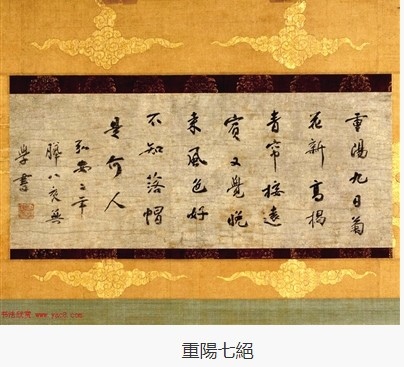 重陽九日菊
花新高揭
青帘接遠
賓又覺晚
来風色好
不知落帽
是何人
弘安二年
臈八夜無
學書
书法欣赏 www.yac8.com
重陽七絕